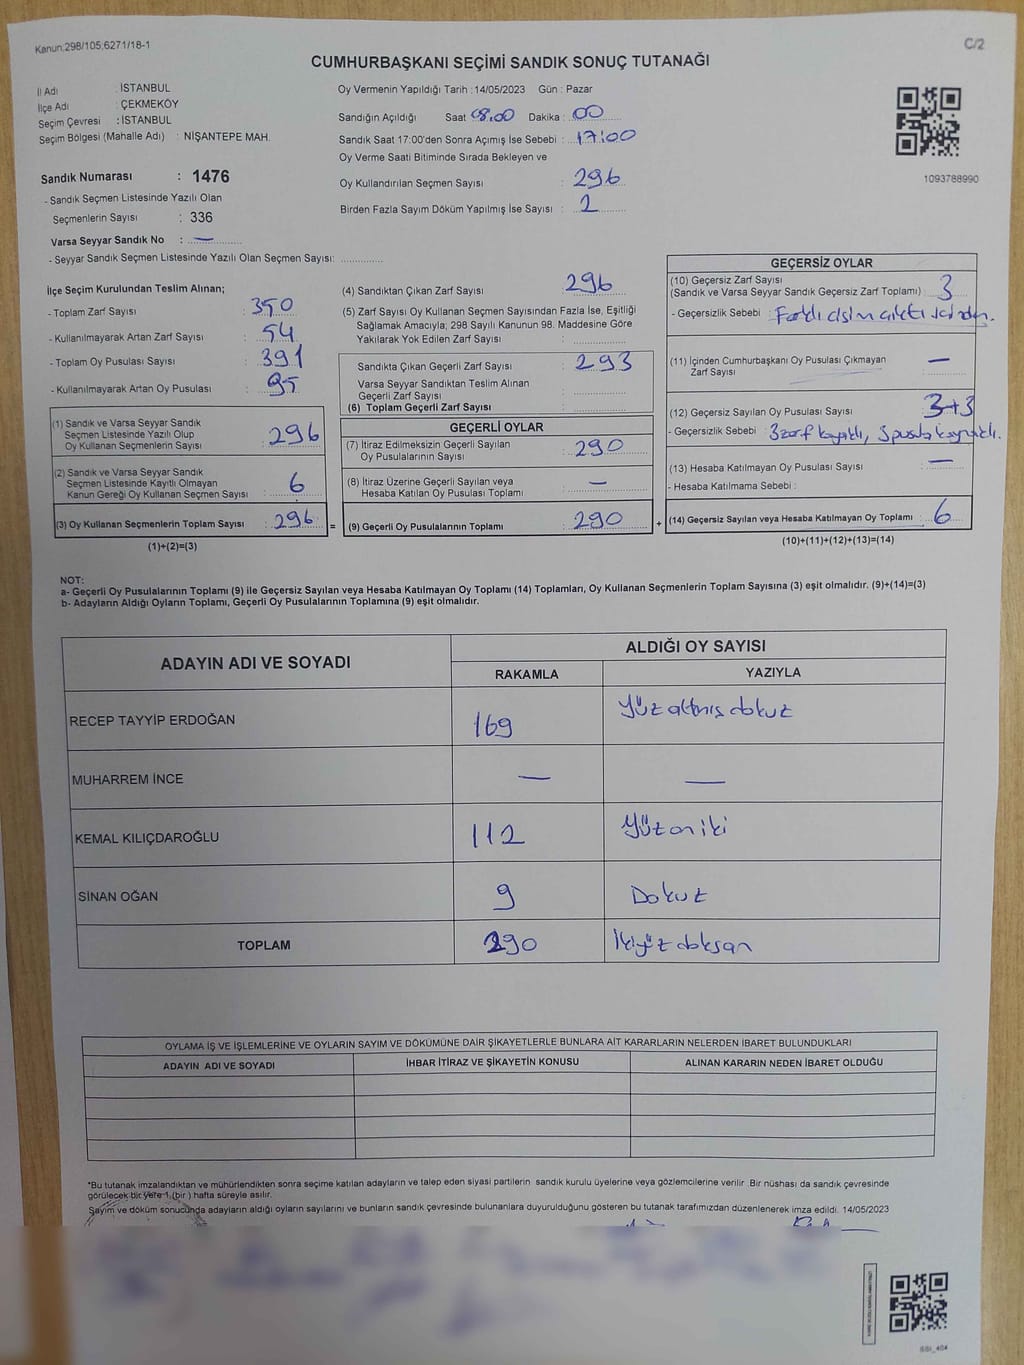 Kanun:298/105;6271/18-1
C/2
CUMHURBAŞKANI SEÇİMİ SANDIK SONUÇ TUTANAĞI
İl Adı : İSTANBUL
İlçe Adı : ÇEKMEKÖY
Seçim Çevresi : İSTANBUL
Seçim Bölgesi (Mahalle Adı) : NİŞANTEPE MAH.
Sandık Numarası : 1476
- Sandık Seçmen Listesinde Yazılı Olan
Seçmenlerin Sayısı : 336
Varsa Seyyar Sandık No : —
- Seyyar Sandık Seçmen Listesinde Yazılı Olan Seçmen Sayısı: ..............
Oy Vermenin Yapıldığı Tarih : 14/05/2023 Gün : Pazar
Sandığın Açıldığı Saat 08.00 Dakika : 00
Sandık Saat 17:00'den Sonra Açımış İse Sebebi : 17:00
Oy Verme Saati Bitiminde Sırada Bekleyen ve
Oy Kullandırılan Seçmen Sayısı : 296
Birden Fazla Sayım Döküm Yapılmış İse Sayısı : 2
1093788990
İlçe Seçim Kurulundan Teslim Alınan;
- Toplam Zarf Sayısı : 350
- Kullanılmayarak Artan Zarf Sayısı : 54
- Toplam Oy Pusulası Sayısı : 391
- Kullanılmayarak Artan Oy Pusulası : 95
(1) Sandık ve Varsa Seyyar Sandık
Seçmen Listesinde Yazılı Olup
Oy Kullanan Seçmenlerin Sayısı : 296
(2) Sandık ve Varsa Seyyar Sandık
Seçmen Listesinde Kayıtlı Olmayan
Kanun Gereği Oy Kullanan Seçmen Sayısı : 6
(3) Oy Kullanan Seçmenlerin Toplam Sayısı : 296 =
(1)+(2)=(3)
(4) Sandıktan Çıkan Zarf Sayısı : 296
(5) Zarf Sayısı Oy Kullanan Seçmen Sayısından Fazla İse, Eşitliği
Sağlamak Amacıyla; 298 Sayılı Kanunun 98. Maddesine Göre
Yakılarak Yok Edilen Zarf Sayısı :
Sandıkta Çıkan Geçerli Zarf Sayısı : 293
Varsa Seyyar Sandıktan Teslim Alınan
Geçerli Zarf Sayısı :
(6) Toplam Geçerli Zarf Sayısı :
GEÇERLİ OYLAR
(7) İtiraz Edilmeksizin Geçerli Sayılan
Oy Pusulalarının Sayısı : 290
(8) İtiraz Üzerine Geçerli Sayılan veya
Hesaba Katılan Oy Pusulası Toplamı : —
(9) Geçerli Oy Pusulalarının Toplamı : 290 +
GEÇERSİZ OYLAR
(10) Geçersiz Zarf Sayısı
(Sandık ve Varsa Seyyar Sandık Geçersiz Zarf Toplamı) : 3
- Geçersizlik Sebebi : Farklı cisim çıktı içinden.
(11) İçinden Cumhurbaşkanı Oy Pusulası Çıkmayan
Zarf Sayısı : —
(12) Geçersiz Sayılan Oy Pusulası Sayısı : 3+3
- Geçersizlik Sebebi : 3 zarf kaynaklı, 3 pusula kaynaklı.
(13) Hesaba Katılmayan Oy Pusulası Sayısı : —
- Hesaba Katılmama Sebebi :
(14) Geçersiz Sayılan veya Hesaba Katılmayan Oy Toplamı : 6
(10)+(11)+(12)+(13)=(14)
NOT:
a- Geçerli Oy Pusulalarının Toplamı (9) ile Geçersiz Sayılan veya Hesaba Katılmayan Oy Toplamı (14) Toplamları, Oy Kullanan Seçmenlerin Toplam Sayısına (3) eşit olmalıdır. (9)+(14)=(3)
b- Adayların Aldığı Oyların Toplamı, Geçerli Oy Pusulalarının Toplamına (9) eşit olmalıdır.
ADAYIN ADI VE SOYADI
ALDIĞI OY SAYISI
RAKAMLA YAZIYLA
RECEP TAYYİP ERDOĞAN 169 Yüz altmış dokuz
MUHARREM İNCE — —
KEMAL KILIÇDAROĞLU 112 Yüz on iki
SİNAN OĞAN 9 Dokuz
TOPLAM 290 İkiyüz doksan
OYLAMA İŞ VE İŞLEMLERİNE VE OYLARIN SAYIM VE DÖKÜMÜNE DAİR ŞİKAYETLERLE BUNLARA AİT KARARLARIN NELERDEN İBARET BULUNDUKLARI
ADAYIN ADI VE SOYADI İHBAR İTİRAZ VE ŞİKAYETİN KONUSU ALINAN KARARIN NEDEN İBARET OLDUĞU
*Bu tutanak imzalandıktan ve mühürlendikten sonra seçime katılan adayların ve talep eden siyasi partilerin sandık kurulu üyelerine veya gözlemcilerine verilir. Bir nüshası da sandık çevresinde
görülecek bir yere 1 (bir ) hafta süreyle asılır.
Sayım ve döküm sonucunda adayların aldığı oyların sayılarını ve bunların sandık çevresinde bulunanlara duyurulduğunu gösteren bu tutanak tarafımızdan düzenlenerek imza edildi. 14/05/2023